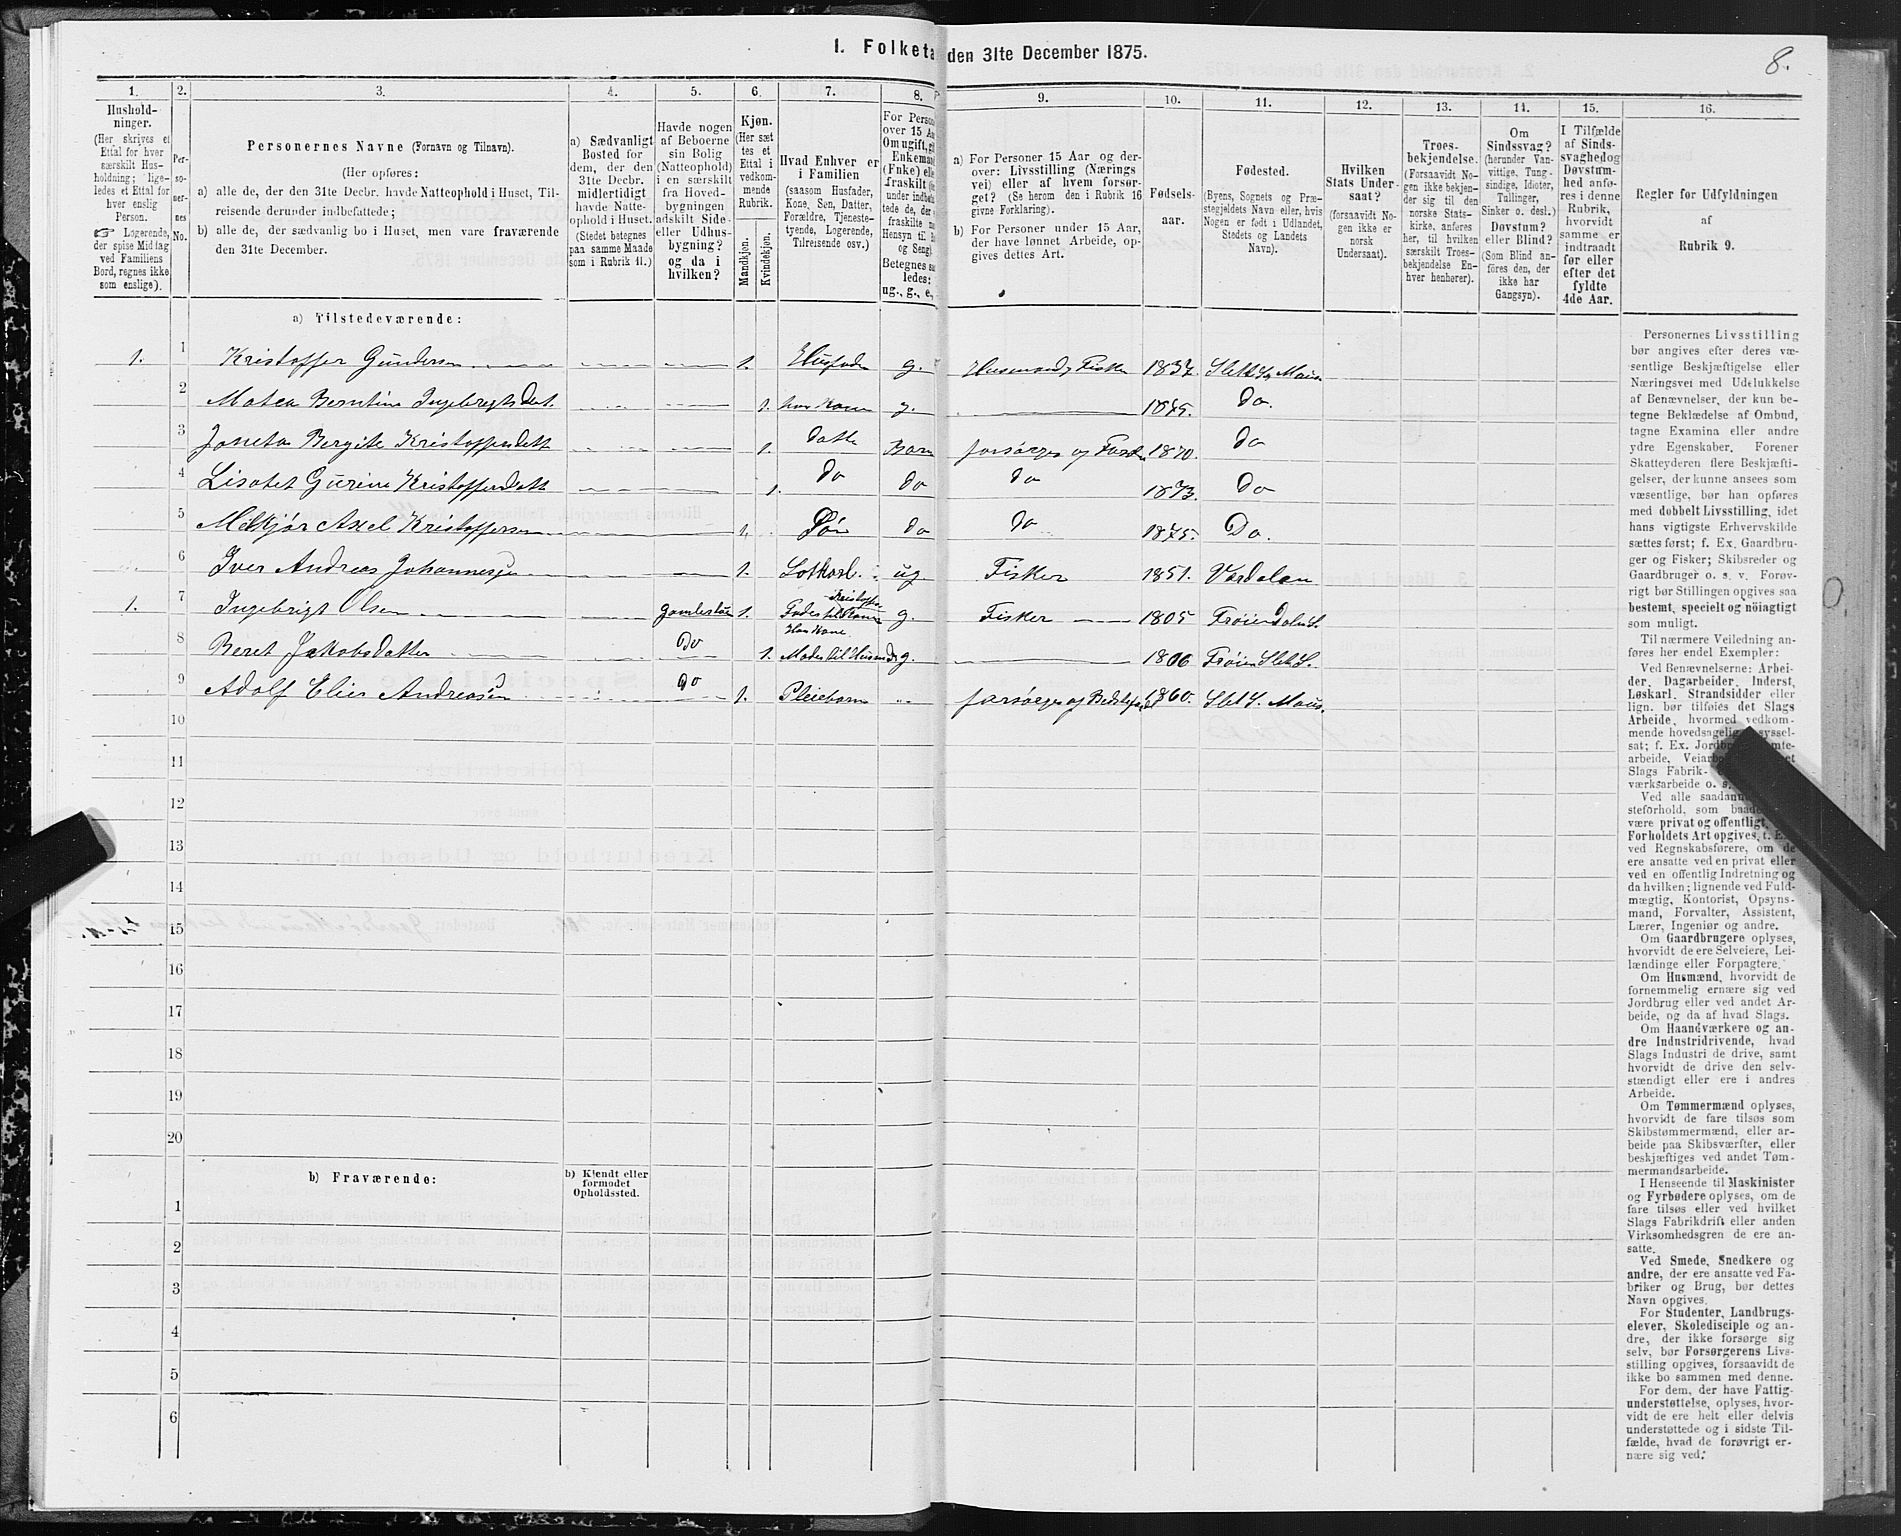 I. Folketæ
den 31te December 1875.
8.
1. 2. 3. 4. 5. 6. 7. 8. 9. 10. 11. 12. 13. 14. 15. 16.
Hushold-
ninger.
(Her skrives et
Ettal for hver
særskilt Hus-
holdning; lige-
ledes et Ettal for
hver enslig
Person.
☞ Logerende,
der spise Middag
ved Familiens
Bord, regnes ikke
som enslige).
Per-
so-
ner-
nes
No.
Personernes Navne (Fornavn og Tilnavn).
(Her opføres:
a) alle de, der den 31te Decbr. havde Natteophold i Huset, Til-
reisende derunder indbefattede;
b) alle de, der sædvanlig bo i Huset, men vare fraværende
den 31te December.
a) Sædvanligt
Bosted for
dem, der den
31te Decbr.
midlertidigt
havde Natte-
ophold i Huset.
(Stedet betegnes
paa samme Maade
som i Rubrik 11.)
Havde nogen
af Beboerne
sin Bolig
(Natteophold)
i en særskilt
fra Hoved-
bygningen
adskilt Side-
eller Udhus-
bygning?
og da i
hvilken?
Kjøn.
(Her sæt-
tes et
Ettal i
vedkom-
mende
Rubrik.
Mandkjøn.
Kvindekjøn.
Hvad Enhver er
i Familien
(saasom Husfader,
Kone, Søn, Datter,
Forældre, Tjeneste-
tyende, Logerende,
Tilreisende osv.)
For Person
over 15 Aa
Om ugift, gi
Enkeman
(Enke) elle
fraskilt (
der indbe
tede de, der
fraskilte m
Hensyn til B
og Seng).
Betegnes sa
ledes:
ug., g., e.,
a) For Personer 15 Aar og der-
over: Livsstilling (Nærings
vei) eller af hvem forsør-
get? (Se herom den i Rubrik 16
givne Forklaring).
b) For Personer under 15 Aar,
der have lønnet Arbeide, op-
gives dettes Art.
Fødsels-
aar.
Fødested.
(Byens, Sognets og Præ-
stegjeldets Navn eller, hvis
Nogen er født i Udlandet,
Stedets og Landets
Navn).
Hvilken
Stats Under-
saat?
(forsaavidt No-
gen ikke er
norsk
Undersaat).
Troes-
bekjendelse.
(Forsaavidt No-
gen ikke bekjen-
der sig til den
norske Stats-
kirke, anføres
her, til hvilken
særskilt Troes-
bekjendelse En-
hver henhører).
Om
Sindssvag?
(herunder Van-
vittige, Tung-
sindige, Idioter,
Tullinger,
Sinker o. desl.)
Døvstum?
eller Blind?
(Som Blind an-
føres den, der
ikke har
Gangsyn).
I Tilfælde
af Sinds-
svaghed og
Døvstum-
hed anfø-
res i denne
Rubrik,
hvorvidt
samme er
indtraadt
før eller
efter det
fyldte
4de Aar.
Regler for Udfyldningen
af
Rubrik 9.
a) Tilstedeværende:
1. 1 Kristoffer Gundersen 1. Husfader g. Husmand, Fisker 1837. Slett S. Maus.
2 Matea Berntine Ingebregtsdat. 1. hans Kone g. 1845. Do.
3 Janeta Bergite Kristoffersdatt 1. Datte Barn forsørges og Fader 1870. Do
4 Lisabet Gurine Kristoffersdatt 1. Do Do Do 1873. Do
5 Melkjør Axel Kristoffersen 1. Søn Do Do 1875. Do.
6 Iver Andreas Johannessen 1. Lotkarl. ug. Fisker 1851. Værdalen
1. 7 Ingebrigt Olsen gamlestue 1. Fader til Kristoffers Kone g. Fisker 1805 Frøien Dalu S.
8 Beret Jakobsdatter Do 1. Hans Kone Moder til Husmands g. 1806 Frøien Slet S.
9 Adolf Elier Andreassen Do 1. Pleiebarn „ forsørges af Bedstefad 1860. Slet S. Maus.
10
11
12
13
14
15
16
17
18
19
20
b) Fraværende:
b) Kjendt eller
formodet
Opholdssted.
1
2
3
4
5
6
Personernes Livsstilling
bør angives efter deres væ-
sentlige Beskjæftigelse eller
Næringsvei med Udelukkelse
af Benævnelser, der kun be-
tegne Beklædelse af Ombud,
tagne Examina eller andre
ydre Egenskaber. Forener
Skatteyderen flere Beskjæfti-
gelser, der kunne ansees som
væsentlige, bør han opføres
med dobbelt Livsstilling, idet
hans vigtigste Erhvervskilde
sættes først; f. Ex. Gaardbru-
ger og Fisker; Skibsreder og
Gaardbruger o. s. v. Forøv-
rigt bør Stillingen opgives saa
bestemt, specielt og nøiagtigt
som muligt.
Til nærmere Veiledning an-
føres her endel Exempler:
Ved Benævnelserne: Arbei-
der, Dagarbeider, Inderst,
Løskarl, Strandsidder eller
lign. bør tilføies det Slags
Arbeide, hvormed vedkom-
mende hovedsagelig syssel-
sat; f. Ex. Jordbr mte-
arbeide, Veiarb et
Slags Fabrik-
værksarbeide o. s.
Ved alle saadann
steforhold, som baade
være privat og offentligt,
Forholdets Art opgives, t. Ex.
ved Regnskabsførere, om de
ere ansatte ved en privat eller
ved en offentlig Indretning og
da hvilken; lignende ved Fuld-
mægtig, Kontorist, Opsyns-
mand, Forvalter, Assistent,
Lærer, Ingeniør og andre.
Om Gaardbrugere oplyses,
hvorvidt de ere Selveiere, Lei-
lændinge eller Forpagtere.
Om Husmænd, hvorvidt de
fornemmelig ernære sig ved
Jordbrug eller ved andet Ar-
beide, og da af hvad Slags.
Om Haandværkere og an-
dre Industridrivende, hvad
Slags Industri de drive, samt
hvorvidt de drive den selv-
stændigt eller ere i andres
Arbeide.
Om Tømmermænd oplyses,
hvorvidt de fare tilsøs som
Skibstømmermænd, eller ar-
beide paa Skibsværfter, eller
beskjæftiges ved andet Tøm-
mermandsarbeide.
I Henseende til Maskinister
og Fyrbødere oplyses, om de
fare tilsøs eller ved hvilket
Slags Fabrikdrift eller anden
Virksomhedsgren de ere an-
satte.
Ved Smede, Snedkere og
andre, der ere ansatte ved Fa-
briker og Brug, bør dettes
Navn opgives.
For Studenter, Landbrugs-
elever, Skoledisciple og an-
dre, der ikke forsørge sig
selv, bør Forsørgerens Livs-
stilling opgives, forsaavidt de
ikke bo sammen med denne.
For dem, der have Fattig-
understøttelse, oplyses, hvor-
vidt de ere helt eller delvis
understøttede og i sidste Til-
fælde, hvad de forøvrigt er-
nære sig ved.